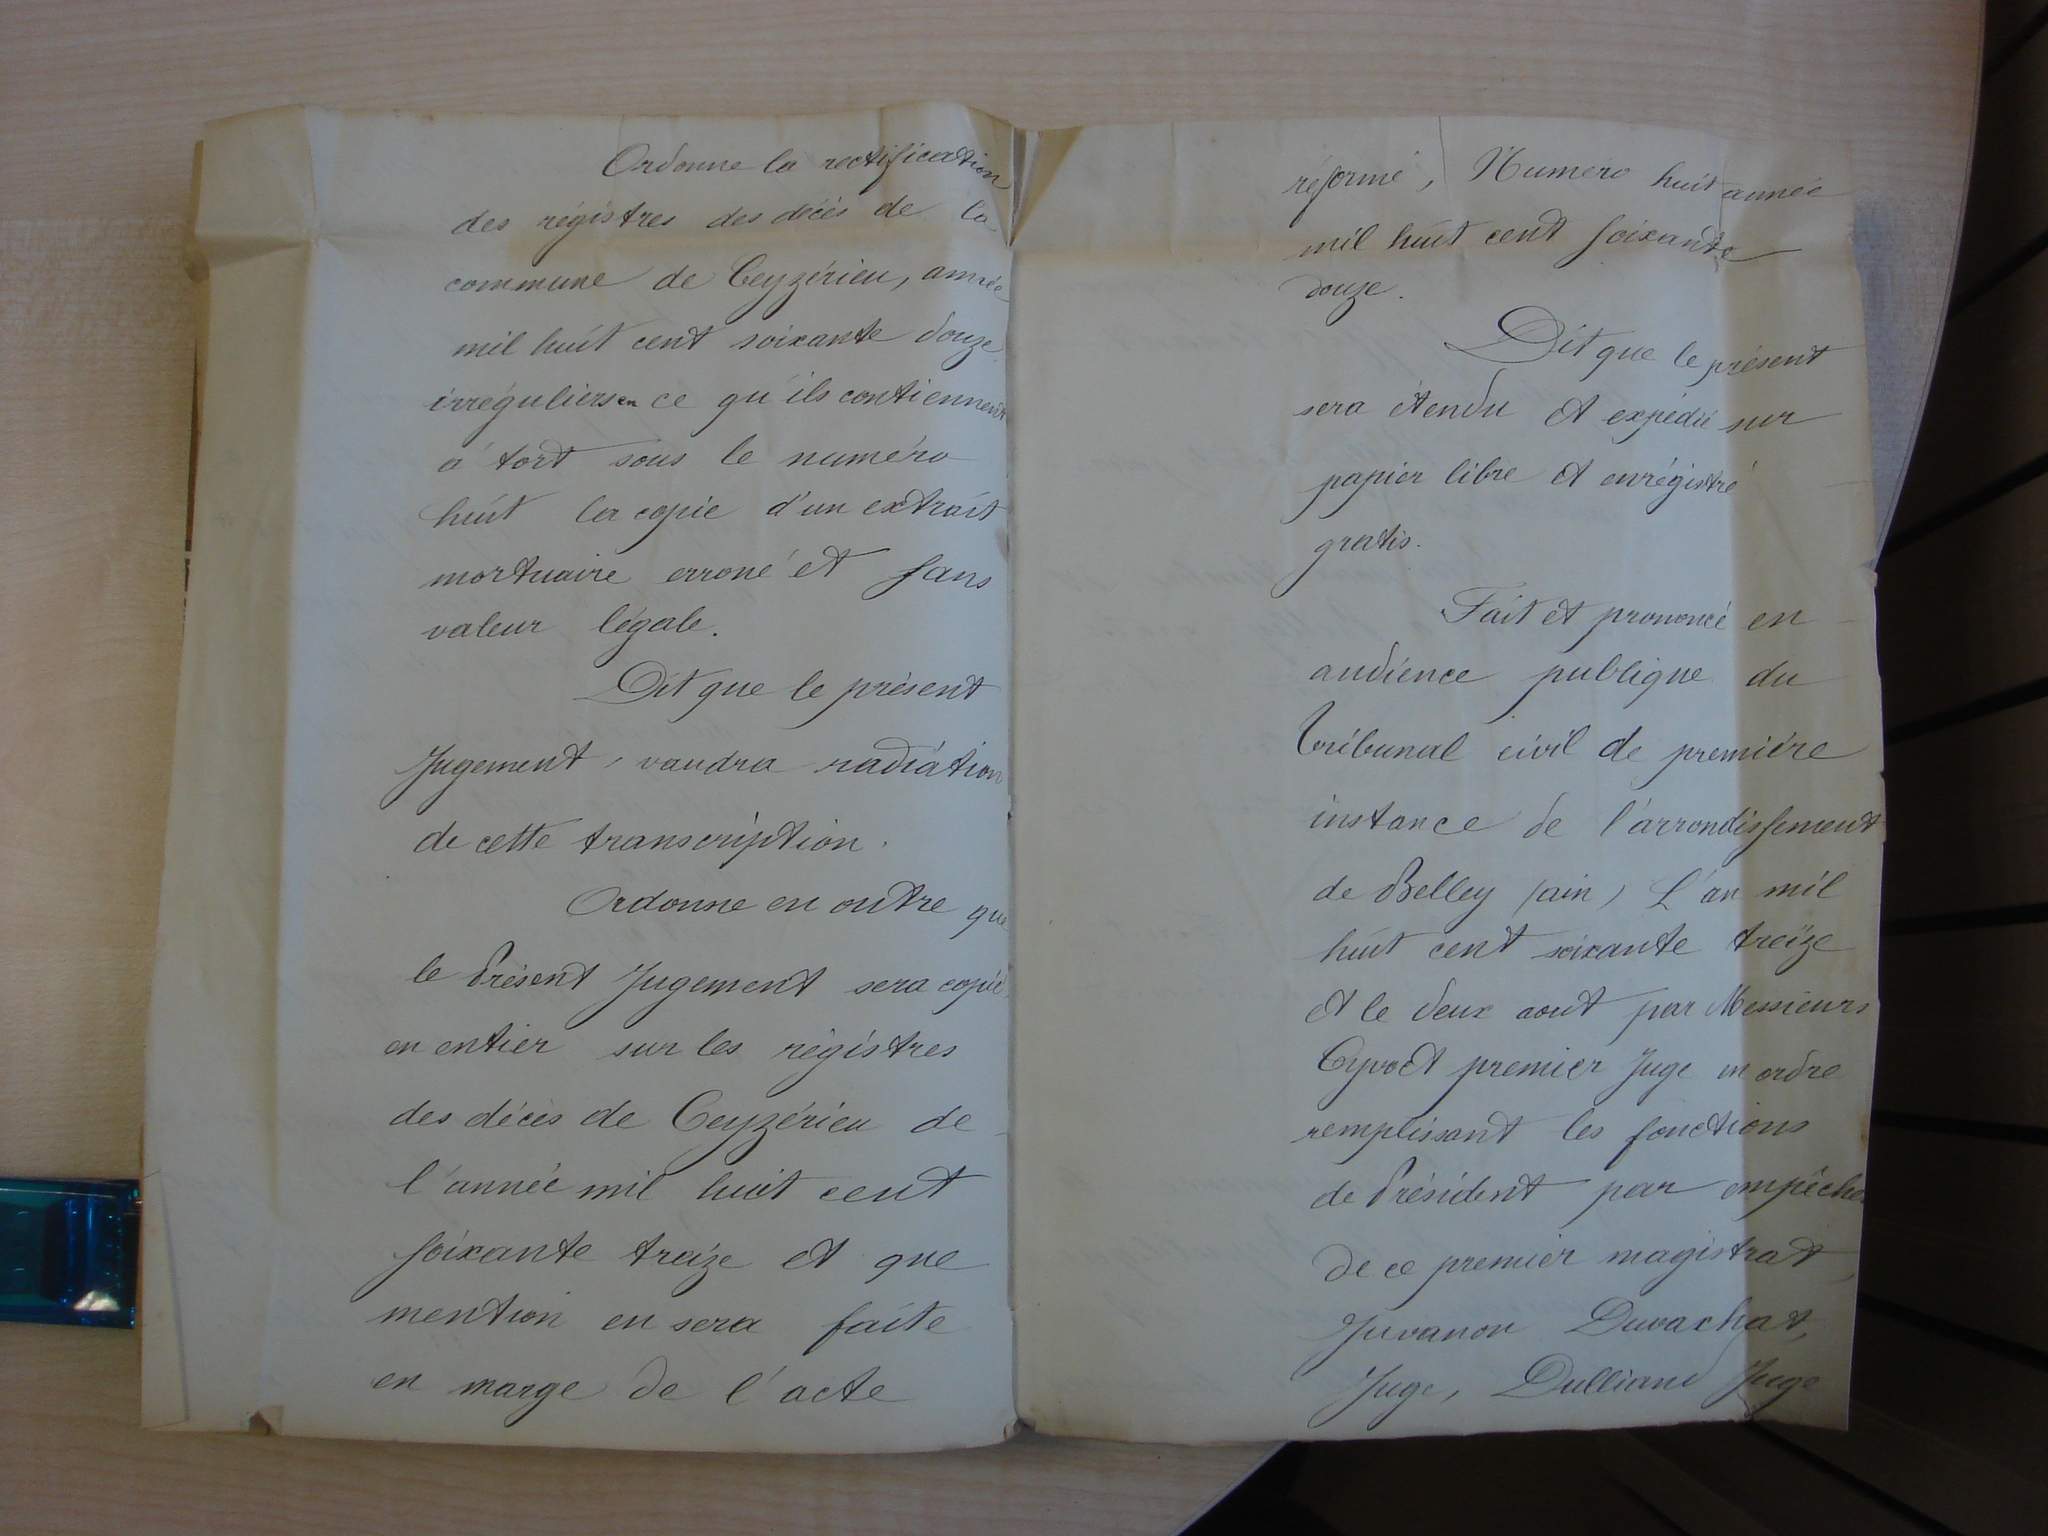 Ordonne la rectification
des régistres des décès de la
commune de Ceyzérieu, année
mil huit cent soixante douze
irréguliers en ce qu'ils contiennent
à tort sous le numéro
huit la copie d'un extrait
mortuaire erroné et sans
valeur légale.
Dit que le présent
Jugement, vaudra radiation
de cette transcription.
Ordonne en outre que
le Présent Jugement sera copié
en entier sur les régistres
des décès de Ceyzérieu de
l'année mil huit cent
soixante treize et que
mention en sera faite
en marge de l'acte
réformé, Numéro huit année
mil huit cent soixante
douze.
Dit que le présent
sera étendu et expédié sur
papier libre et enrégistré
gratis.
Fait et prononcé en
audience publique du
Tribunal civil de première
instance de l'arrondissement
de Belley (ain) L'an mil
huit cent soixante treize
et le deux aout par Messieurs
Cyvoct premier Juge en ordre
remplissant les fonctions
de Président par empêche
de ce premier magistrat,
Juvanon Duvachat,
Juge, Dulliand Juge